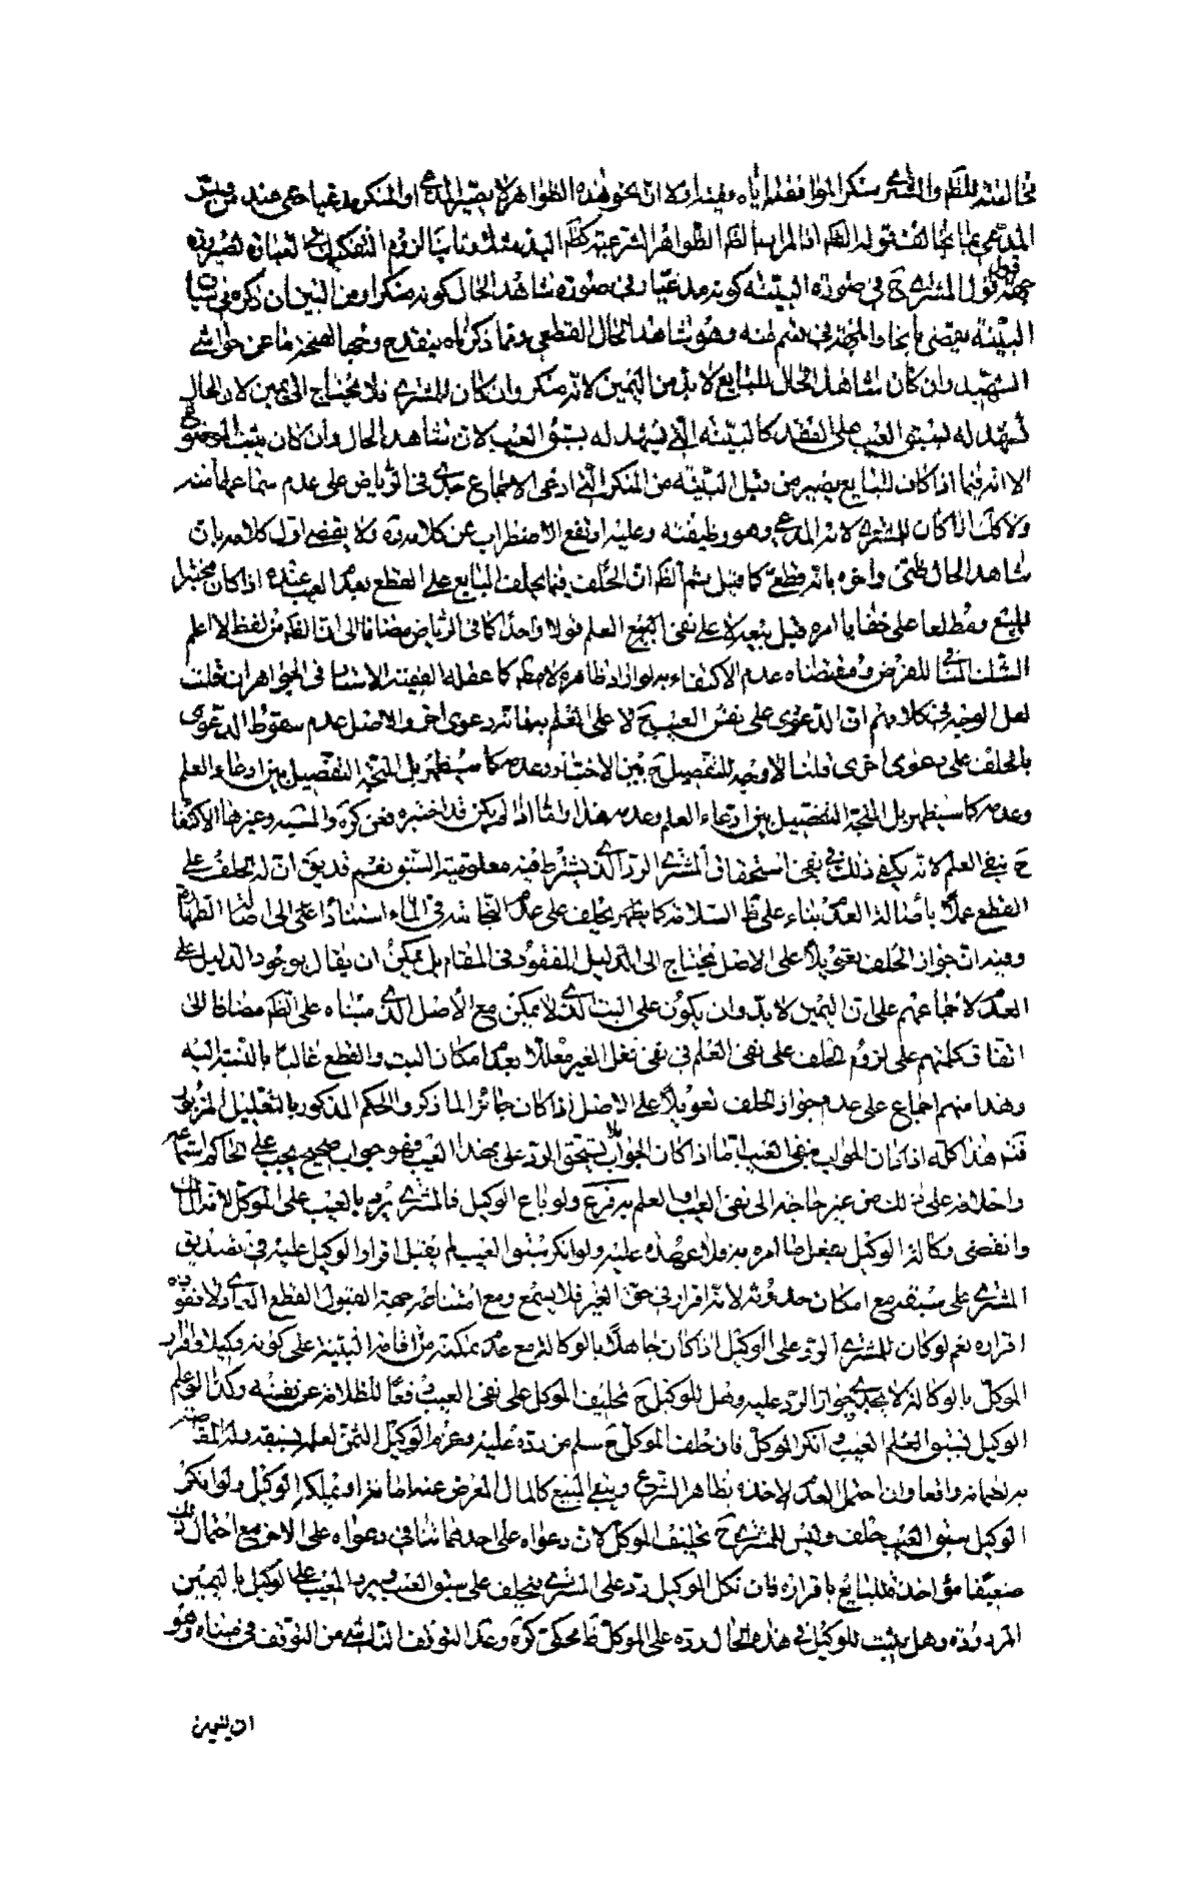 مخالفته للظم والمشتري منكر الموافقته اياه وفيه اولا ان نحو هذه الظواهر لا يصير المدعي او المنكر مدعيا حتى عند من يفسر
المدعي بما يخالف قوله الظم اذ المراد بالظم الظواهر الشرعية كظم اليد
جهة قول المشتري ح في صورة البينة كونه مدعيا وفي صورة شاهد الحال كونه منكرا ومن البين ان ذكره في سياق
البينة يقتضي باتحاد الجهة وهو شاهد الحال القطعي ومما ذكرناه ينقدح وجه الصحة ما عن حواشي
الشهيد وان كان شاهد الحال للبايع لا بد من اليمين لانه منكر وان كان للمشتري فلا يحتاج الى يمين لان الحال
تشهد له بسبق العيب على العقد كالبينة التي تشهد له بسبق العيب لان شاهد الحال وان كان يثبت
الا انه فيما اذا كان للبايع يصير من قبيل البينة من المنكر التي ادعى الاجماع جدي في الرياض على عدم سماعها منه
ولا كك اذا كان للمشتري لانه المدعي وهو وظيفته وعليه ارتفع الاضطراب عن كلامه ره ولا يقضي اول كلامه بان
شاهد الحال ظني واخره بانه قطعي كما قيل ثم الظم ان الحلف فيما يحلف البايع على القطع بعدم العيب عنده اذا كان مختبرا
للمبيع ومطلعا على خفايا امره قبل بيعه لا على نفي العلم قولا واحدا كما في الرياض مضافا الى ان الظم من لفظ لا اعلم
الشك المنافي للغرض ومقتضاه عدم الاكتفاء به لو اراد ظاهره لا مطم كما عقله الفقيه الاستاد في الجواهر ان قلت
لعل الوجه في كلامهم ان الدعوى على نفس العيب ح لا على العلم بها فانه دعوى اخرى والاصل عدم سقوط الدعوى
بالحلف على دعوى اخرى قلنا لا وجه للتفصيل ح بين الاختبار وعدمه كما سيظهر بل المتجه التفصيل بين ادعاء العلم
وعدمه كما سيظهر بل المتجه التفصيل بين ادعاء العلم وعدمه هذا واما اذا لم يكن قد اختبره فعن كرة والمسيه وغيرها الاكتفا
ح بنفي العلم لانه يكفي ذلك في نفي استحقاق المشتري الرد الذي يشترط فيه معلومية السبق نعم قد يق ان له الحلف على
القطع عملا باصالة العدم بناء على ظم السلامة كما يظهر يحلف على عدم النجاسة في الماء استنادا على الى اصالة الطهارة
وفيه ان جواز الحلف تعويلا على الاصل يحتاج الى الدليل المفقود في المقام بل يمكن ان يقال بوجود الدليل على
العدم لاجماعهم على ان اليمين لا بد وان يكون على البت الذي لا يمكن مع الاصل الذي مبناه على الظم مضافا الى
اتفاق كلمتهم على لزوم الحلف على نفي العلم في نفي فعل الغير معللا بعدم امكان البت والقطع غالبا بالنسبة اليه
وهذا منهم اجماع على عدم جواز الحلف تعويلا على الاصل اذ كان جائزا لما ذكر والحكم المذكور بالتعليل المزبور
فتم هذا كله اذا كان الجواب بنفي العيب اما اذا كان الجواب لا تستحق الرد علي بهذا العيب فهو جواب صحيح يجب على الحاكم استماعه
واحلافه على ذلك من غير حاجة الى نفي العيب والعلم به فرع ولو باع الوكيل فالمشتري يرد بالعيب على الموكل لانه المالك
وانقضى وكالة الوكيل بفعل ما امر به فلا عهدة عليه ولو انكر سبق العيب لم يقبل اقرار الوكيل عليه في تصديق
المشتري على سبقه مع امكان حدوثه لانه اقرار في حق الغير فلا يسمع ومع امتناعه جهة القبول القطع العادي لا نفوذ
اقراره نعم لو كان للمشتري الرد على الوكيل اذا كان جاهلا بالوكالة مع عدم تمكنه من اقامة البينة على كونه وكيلا واقرار
الموكل بالوكالة لا يجدي جواز الرد عليه وهل للوكيل ح تحليف الموكل على نفي العيب دفعا للظلامة عن نفسه وكذا لو علم
الوكيل بسبق العيب وانكر الموكل فان حلف الموكل ح سلم من رده عليه وغرم الوكيل الثمن لعلمه بسبقه وله المقاصة
وان احتمل العدم لاخذه بظاهر الشرع ويبقى المبيع كالمال المعرض عنه او يملكه الوكيل ولو انكر
الوكيل سبق العيب حلف وليس للمشتري ح تحليف الموكل لان دعواه على احدهما تنافي دعواه على الاخر مع احتمال ذلك
ضعيفا مؤاخذة للبايع باقراره فان نكل الوكيل رد على المشتري فيحلف على سبق العيب ويرد المعيب على الوكيل باليمين
المردودة وهل يثبت للوكيل في هذه الحال رده على الموكل ظم محكي كرة وعد التوقف الناشئ من التوقف في مبناه وهو
ان اليمين